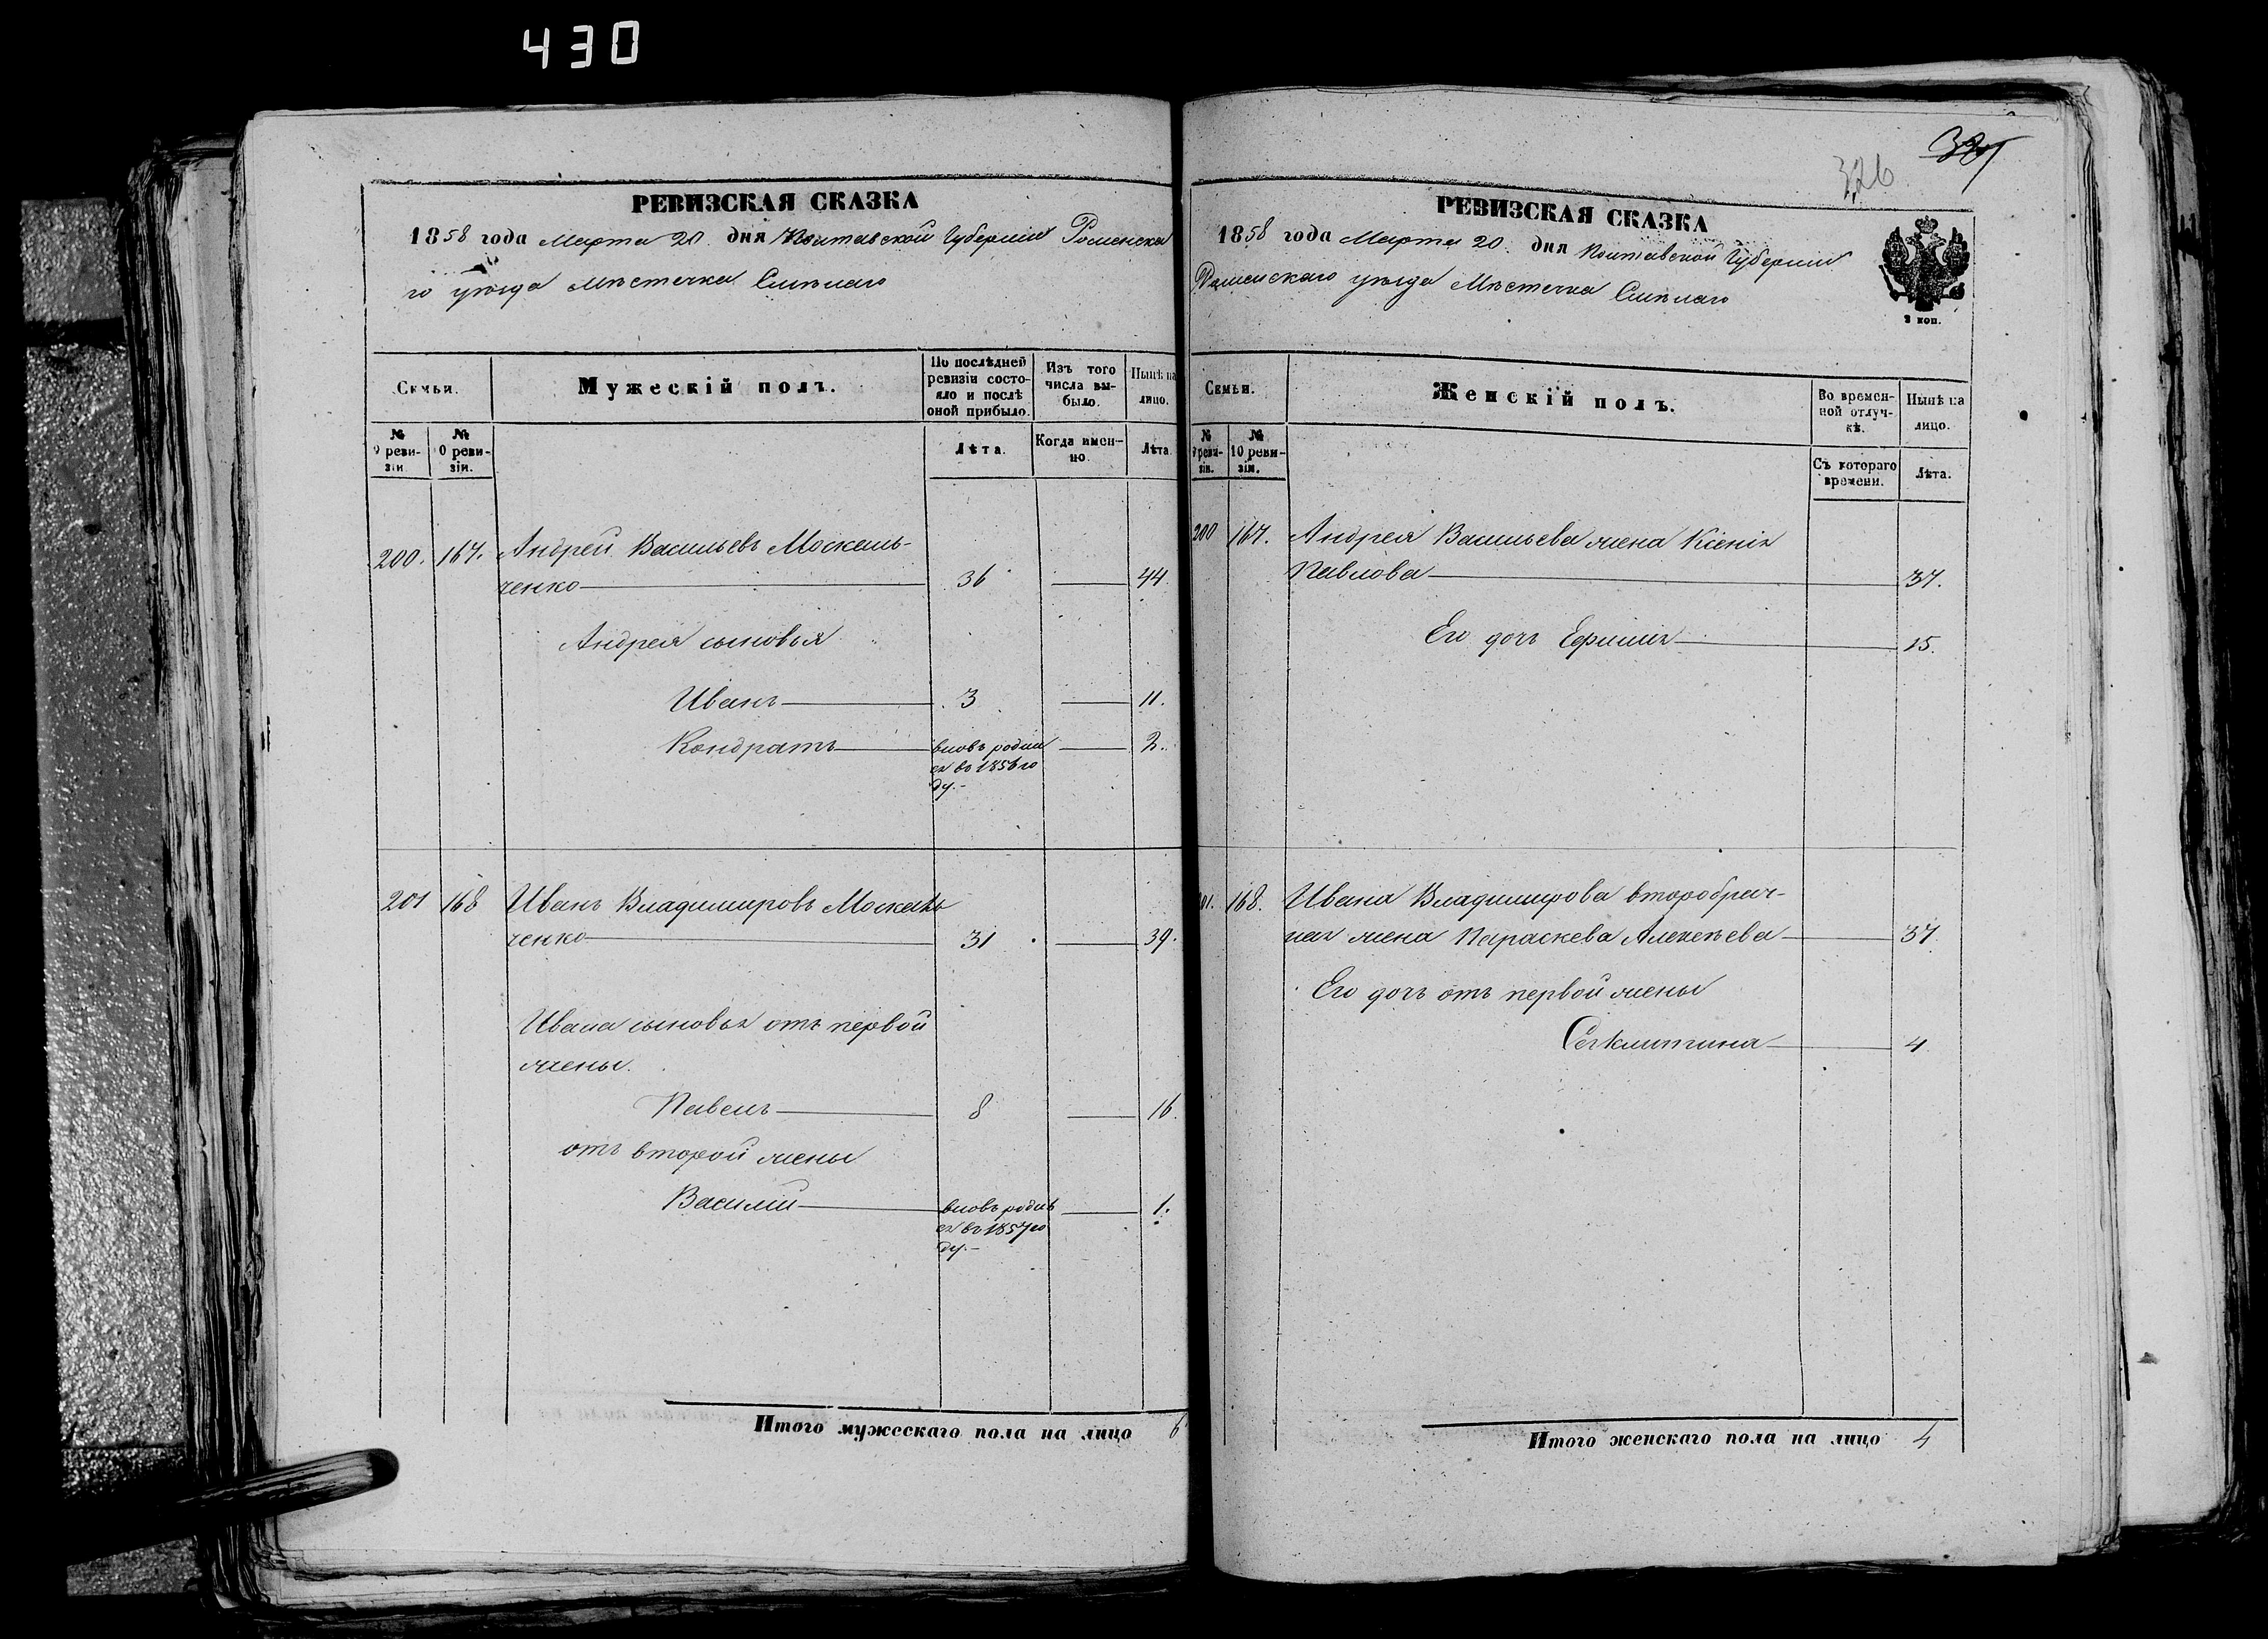 430
РЕВИЗСКАЯ СКАЗКА
1858 года Марта 20. дня Полтавской Губерніи Роменска
го уѣзда Мѣстечка Смѣлаго
Семьи.
Мужескій полъ.
По послѣдней
ревизіи состо-
яло и послѣ
оной прибыло.
Изъ того
числа вы-
было.
Нынѣ на
лицо.
№
9 реви-
зіи
№
10 реви-
зіи.
Лѣта.
Когда имен-
но.
Лѣта.
200. 167. Андрей Васильевъ Москаль-
ченко 36 44.
Андрея сыновья
Иванъ 3 11.
Кондратъ вновь родил 2.
ся во 1856 го
ду.-
201 168 Иванъ Владимировъ Москаль
ченко 31 39.
Ивана сыновья отъ первой
жены.
Павелъ 8 16.
отъ второй жены
Василій вновь родил 1.
ся въ 1857 го
ду.-
Итого мужескаго пола на лицо 6
326
РЕВИЗСКАЯ СКАЗКА
1858 года Марта 20. дня Полтавской Губерніи
Роменскаго уѣзда Мѣстечка Смѣлаго
2 коп.
Семьи.
Женскій полъ.
Во времен-
ной отлуч-
кѣ.
Нынѣ на
лицо.
№
9 реви-
зіи.
№
10 реви-
зіи.
Съ котораго
времени.
Лѣта.
200 167. Андрея Васильева жена Ксенія
Павлова 37.
Его дочь Ефимія 15.
201. 168. Ивана Владимирова второбрач-
ная жена Параскева Алексѣева 37
Его дочь отъ первой жены
4
Итого женскаго пола на лицо 4